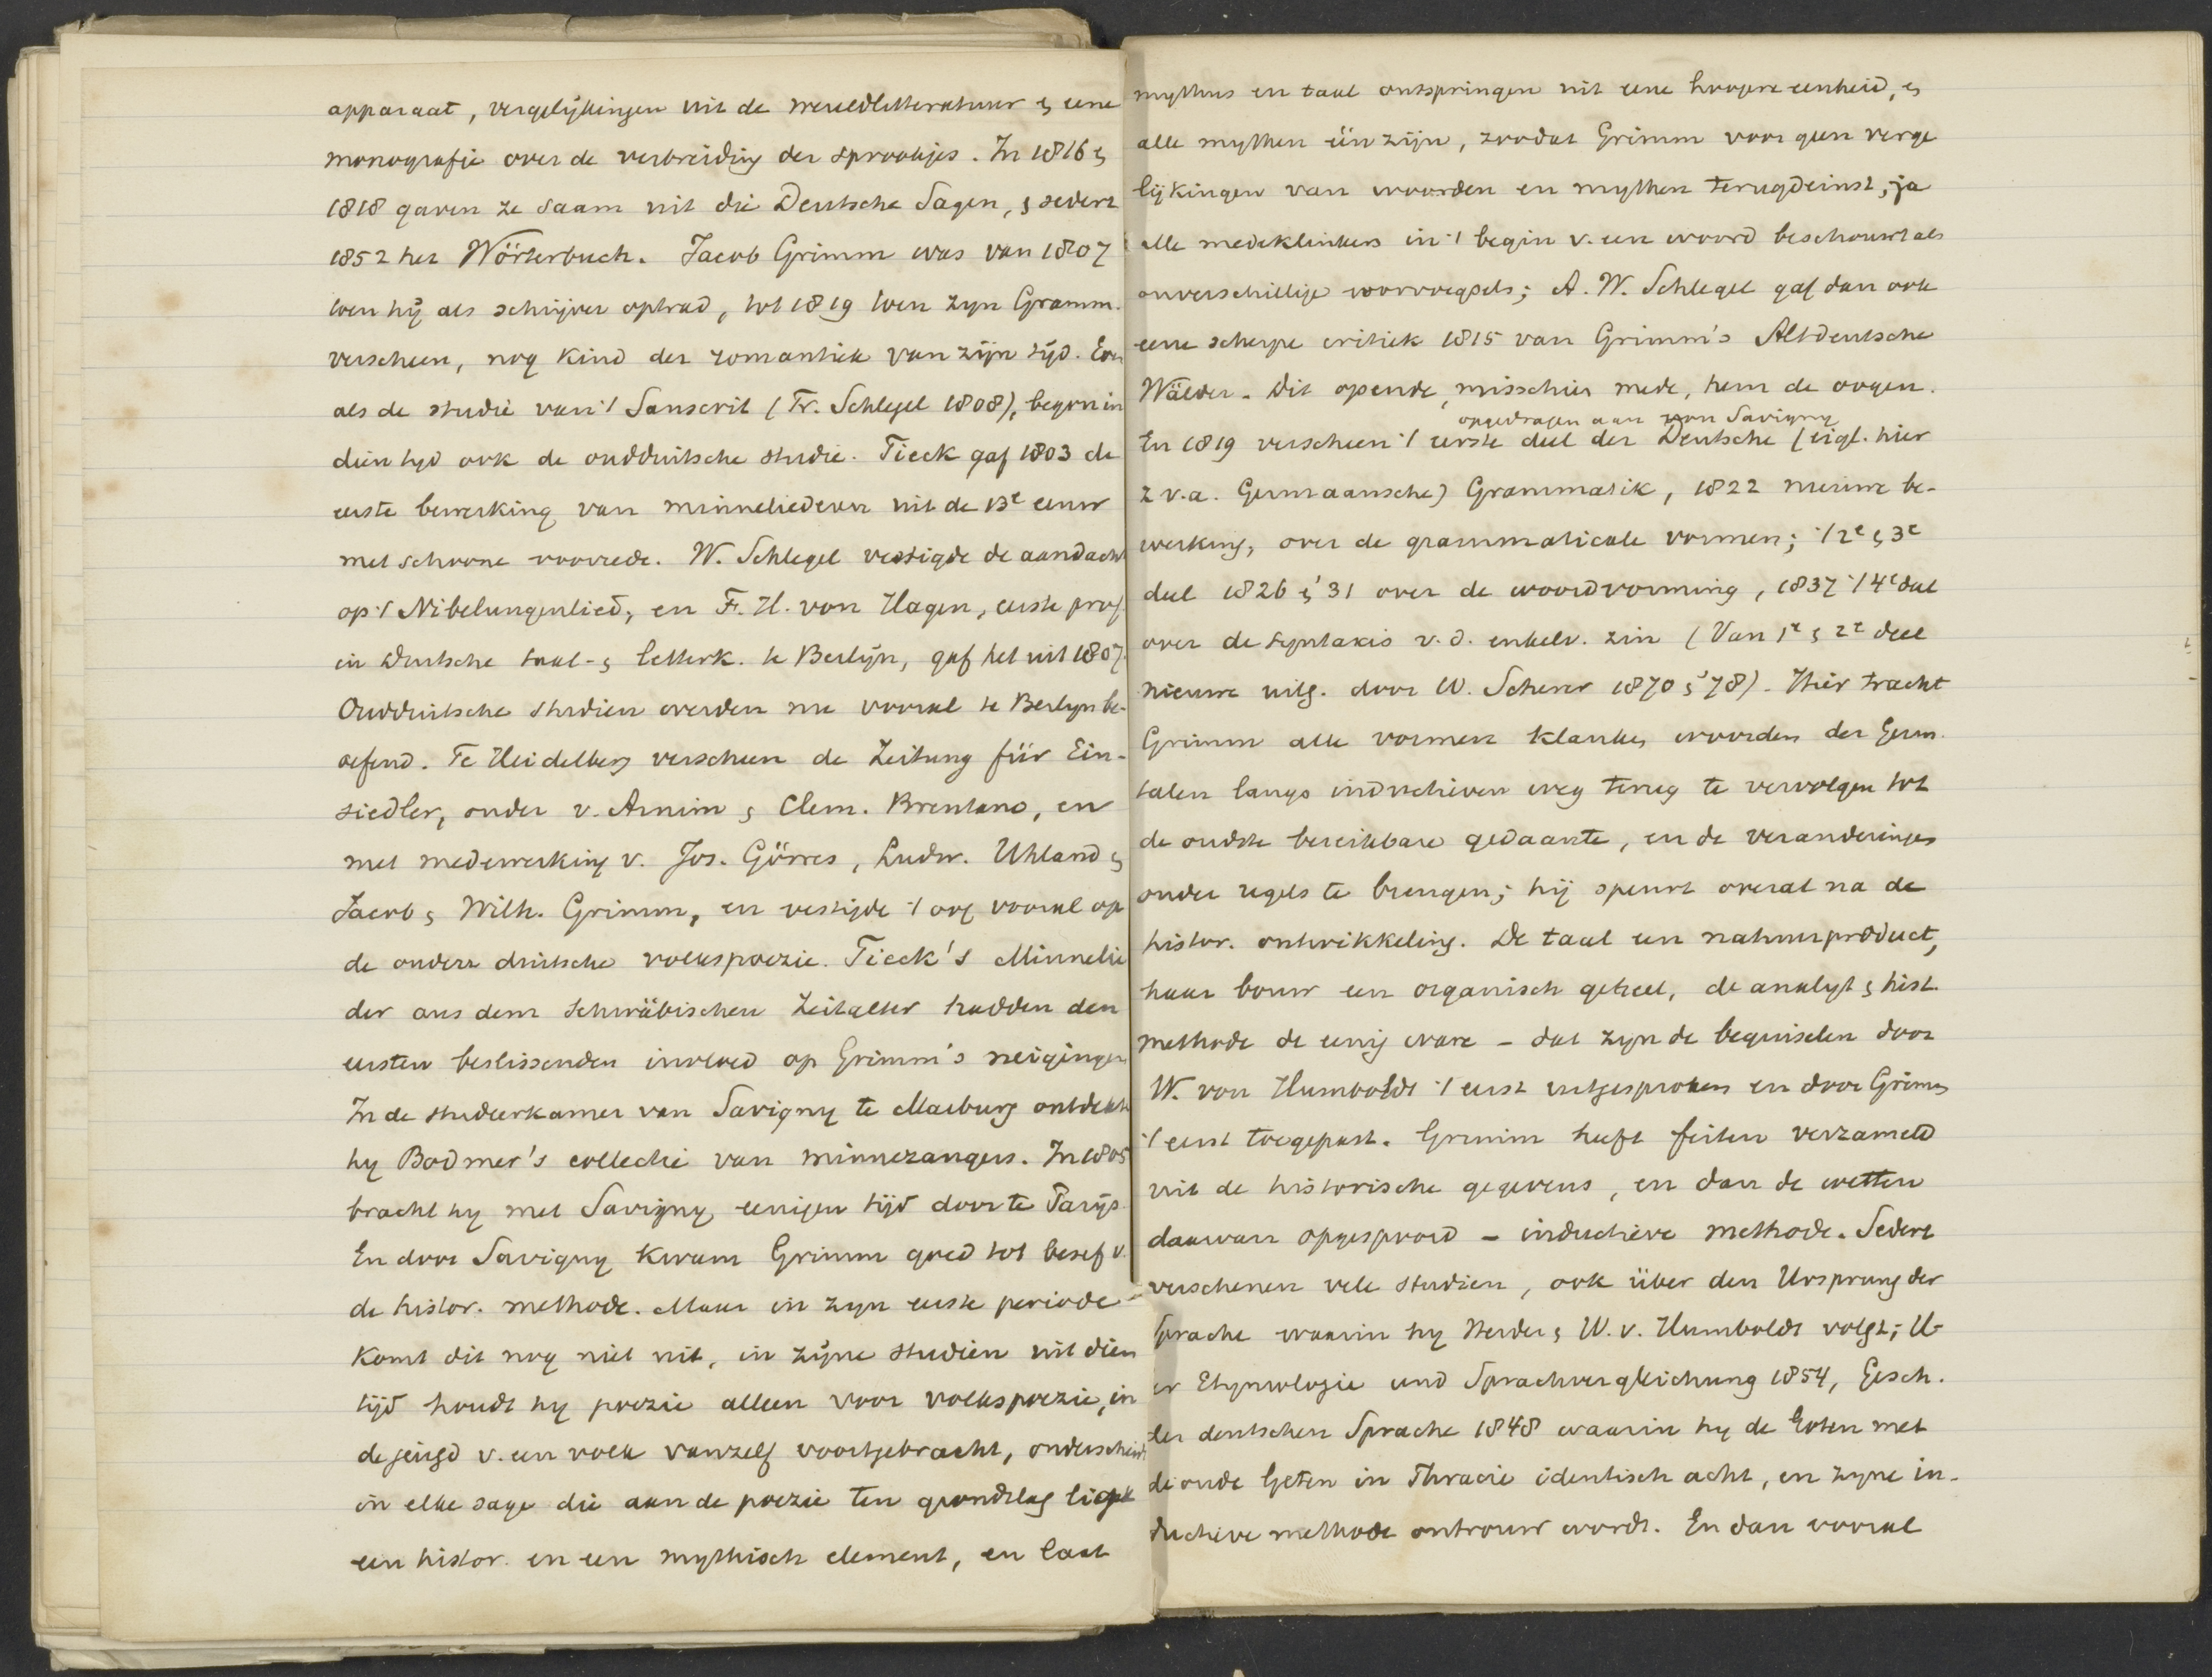 apparaat, vergelijkingen uit de wereldlitteratuur & eene
monografie over de verbreiding der sprookjes. In 1816 &
1818 gaven ze saam uit die Deutsche Sagen, & sedert
1852 het Wörterbuch. Jacob Grimm was van 1807
toen hij als schrijver optrad, tot 1819 toen zyn Gramm.
verscheen, nog kind der romantiek van zijn tijd. Even
als de studie van 't Sanscrit (Fr. Schlegel 1808), begon in
dien tyd ook de oudduitsche studie. Tieck gaf 1803 de
eerste bewerking van minneliederen uit de 13e eeuw
met schoone voorrede. W. Schlegel vestigde de aandacht
op 't Nibelungenlied, en F. H. von Hagen, eerste prof.
in Duitsche taal- & letterk. te Berlijn, gaf het uit 1807.
Oudduitsche studien werden nu vooral te Berlyn be-
oefend. Te Heidelberg verscheen de Zeitung für Ein-
siedler, onder v. Arnim & Clem. Brentano, en
met medewerking v. Jos. Görres, Ludw. Uhland &
Jacob & Wilh. Grimm, en vestigde 't oog vooral op
de oudere duitsche volkspoezie. Tieck's Minnelie
der aus dem Schwäbischen Zeitalter hadden den
eersten beslissenden invloed op Grimm's neigingen
In de studeerkamer van Savigny te Marburg ontdekte
hy Bodmer's collectie van minnezangers. In 1805
bracht hy met Savigny eenigen tijd door te Parijs.
En door Savigny kwam Grimm goed tot besef v.
de histor. methode. Maar in zyn eerste periode
komt dit nog niet uit, in zijne studien uit dien
tijd houdt hy poezie alleen voor volkspoezie, in
de jeugd v. een volk vanzelf voortgebracht, onderscheidt
in elke sage die aan de poezie ten grondslag ligt
een histor. en een mythisch element, en laat
mythus en taal ontspringen uit eene hoogere eenheid, &
alle mythen één zijn, zoodat Grimm voor geen verge
lijkingen van woorden en mythen terugdeinst, ja
alle medeklinkers in 't begin v. een woord beschouwt als
onverschillige voorvoegsels; A. W. Schlegel gaf dan ook
eene scherpe critiek 1815 van Grimm's Altdeutsche
Wälder. Dit opende, misschien mede, hem de oogen.
opgedragen aan von Savigny
En 1819 verscheen 't eerste deel der Deutsche (eigl. hier
z.v.a. Germaansche) Grammatik, 1822 nieuwe be-
werking, over de grammaticale vormen; 't 2e & 3e
deel 1826 & '31 over de woordvorming, 1837 't 4e deel
over de syntaxis v. d. enkelv. zin (Van 1e & 2e deel
nieuwe uitg. door W. Scherer 1870 & '78). Hier tracht
Grimm alle vormen klanken woorden der Germ.
talen langs inductieven weg terug te vervolgen tot
de oudste bereikbare gedaante, en de veranderingen
onder regels te brengen; hij speurt overal na de
histor. ontwikkeling. De taal een natuurproduct,
haar bouw een organisch geheel, de analyt & hist.
methode de eenig ware – dat zyn de beginselen door
W. von Humboldt 't eerst uitgesproken en door Grimm
't eerst toegepast. Grimm heeft feiten verzameld
uit de historische gegevens, en dan de wetten
daarvan opgespoord – inductieve methode. Sedert
verschenen vele studien, ook über den Ursprung der
Sprache waarin hy Herder & W. v. Humboldt volgt; Ü-
er Etymologie und Sprachvergleichung 1854, Gesch.
der deutschen Sprache 1848 waarin hy de Goten met
de oude Geten in Thracie identisch acht, en zyne in-
ductieve methode ontrouw wordt. En dan vooral